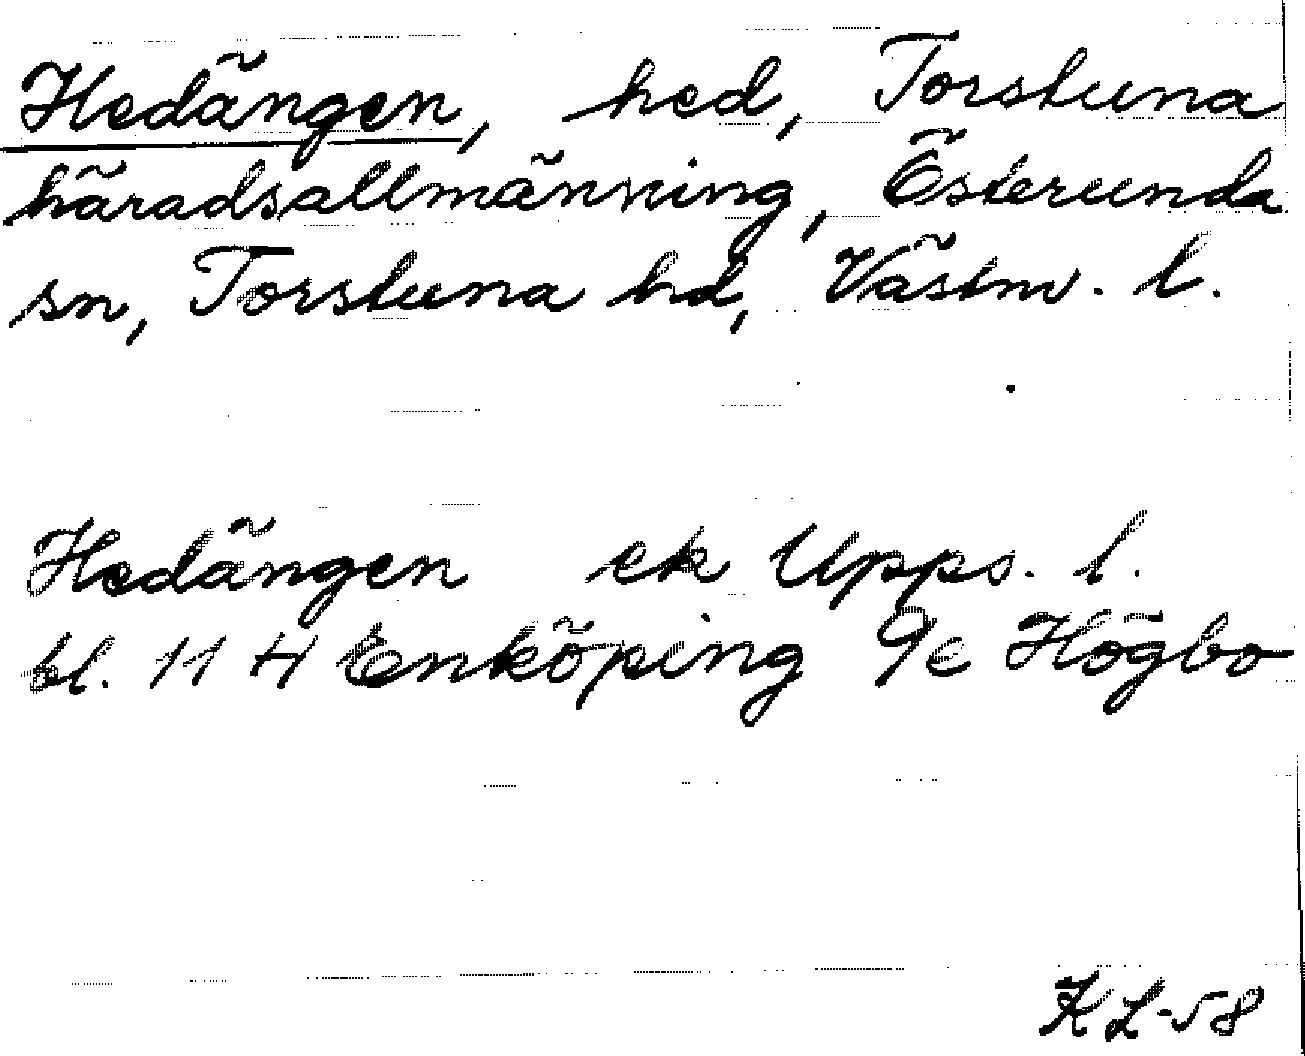 Hedängen, hed, Torstuna
häradsallmänning, Österunda
sn, Torstuna hd, Västm. l.
Hedängen ek Upps. l.
bl. 11 H Enköping 9e Högbo
KL-58